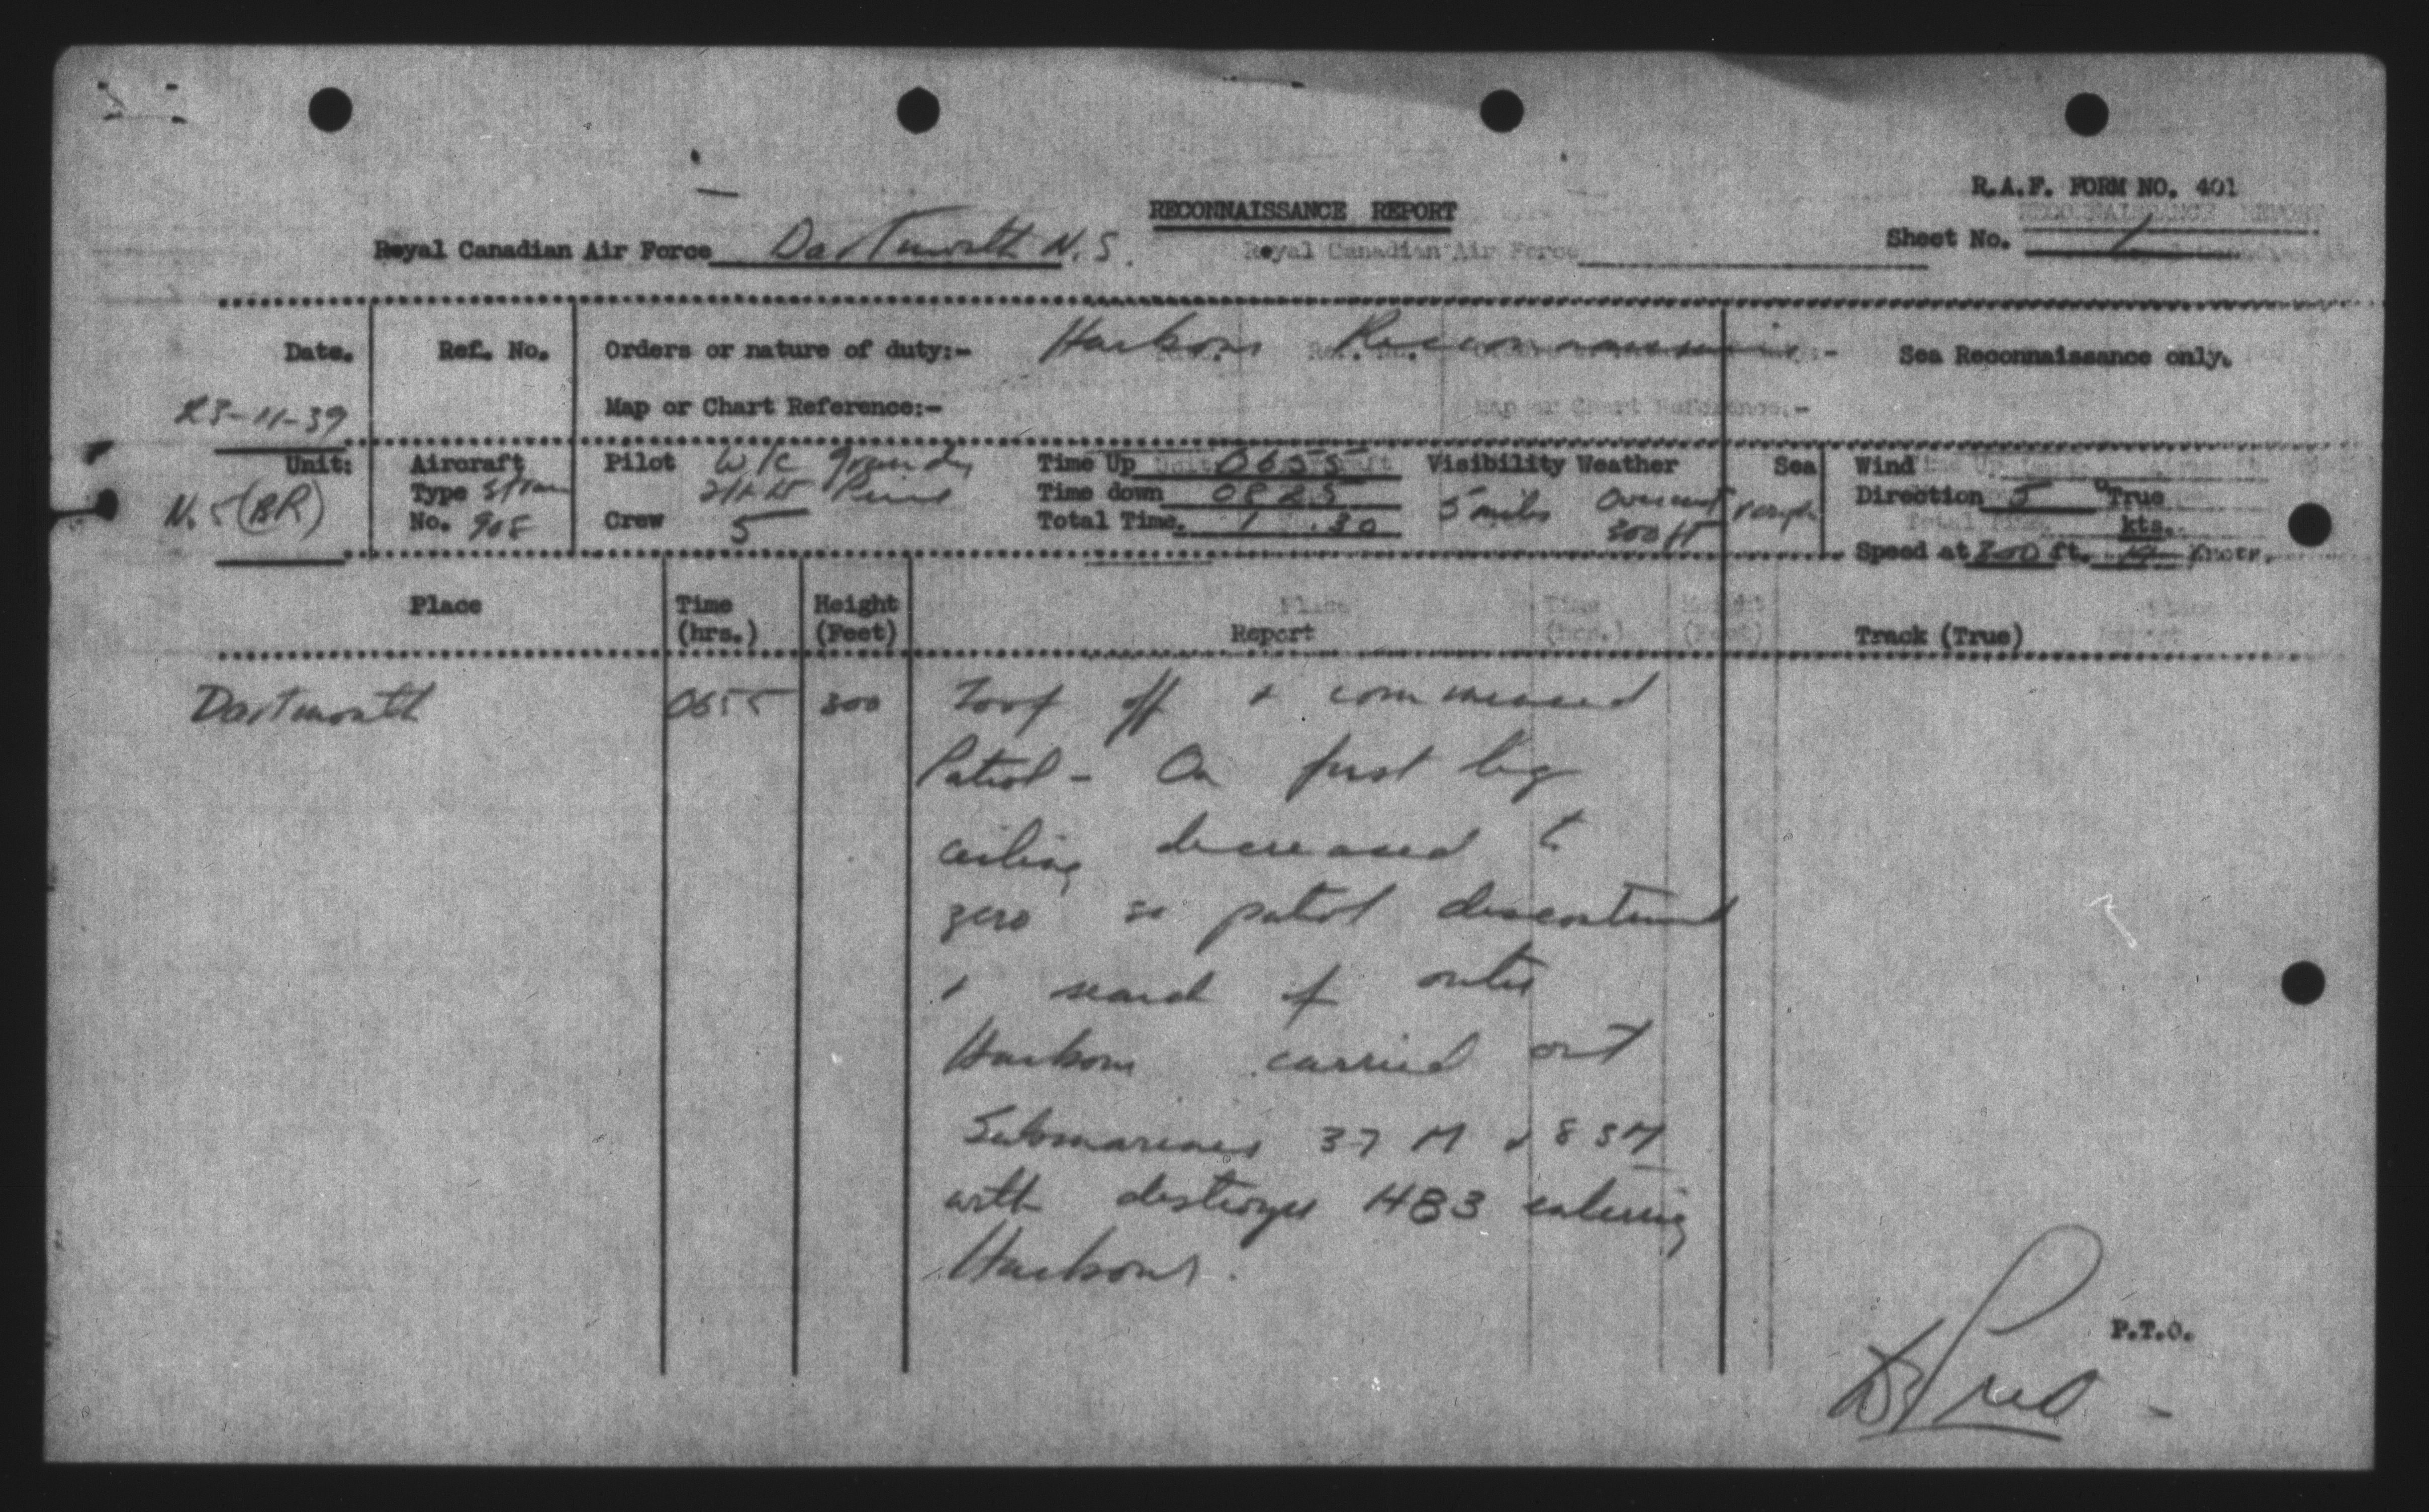 R.A.F. FORM NO. 401
RECONNAISSANCE REPORT
Royal Canadian Air Force Dartmouth N.S.
Sheet No. 1
Date. Ref. No. Orders or nature of duty:- Harbour Reconnaissance Sea Reconnaissance only.
23-11-39 Map or Chart Reference:-
Unit: Aircraft Pilot W/C Time Up 0655 Visibility Weather Sea Wind
N. 5 (BR) Type Stran Time down 0825 5 miles Overcast rough Direction 5 °True
No. 908 Crew 5 Total Time. 1.30 300 ft kts.
Speed at ft. knots.
Place Time (hrs.) Height (Feet) Report Track (True)
Dartmouth 0655 300 Took off & commenced
Patrol - On first leg
ceiling decreased to
zero so patrol discontinued
& search of outer
Harbour carried out
Submarines 37 M & 83M
with destroyer H83 entering
Harbour.
P.T.O.